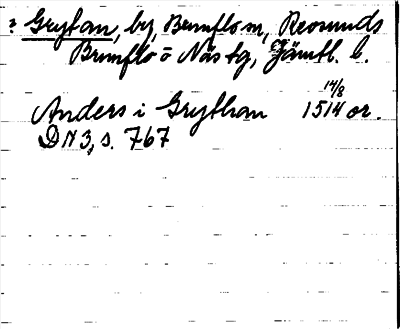 : Grytan, by, Brunflo sn, Revsunds
Brunflo o Näs tg, Jämtl. l.
14/8
Anders i Grythan 1514 or.
DN 3, s. 767